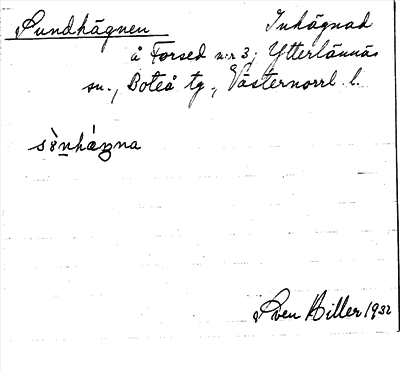 Sundhägnen Inhägnad
å Forsed n:r 3, Ytterlännäs
sn., Boteå tg., Västernorrl. l.
Sven Hiller 1932